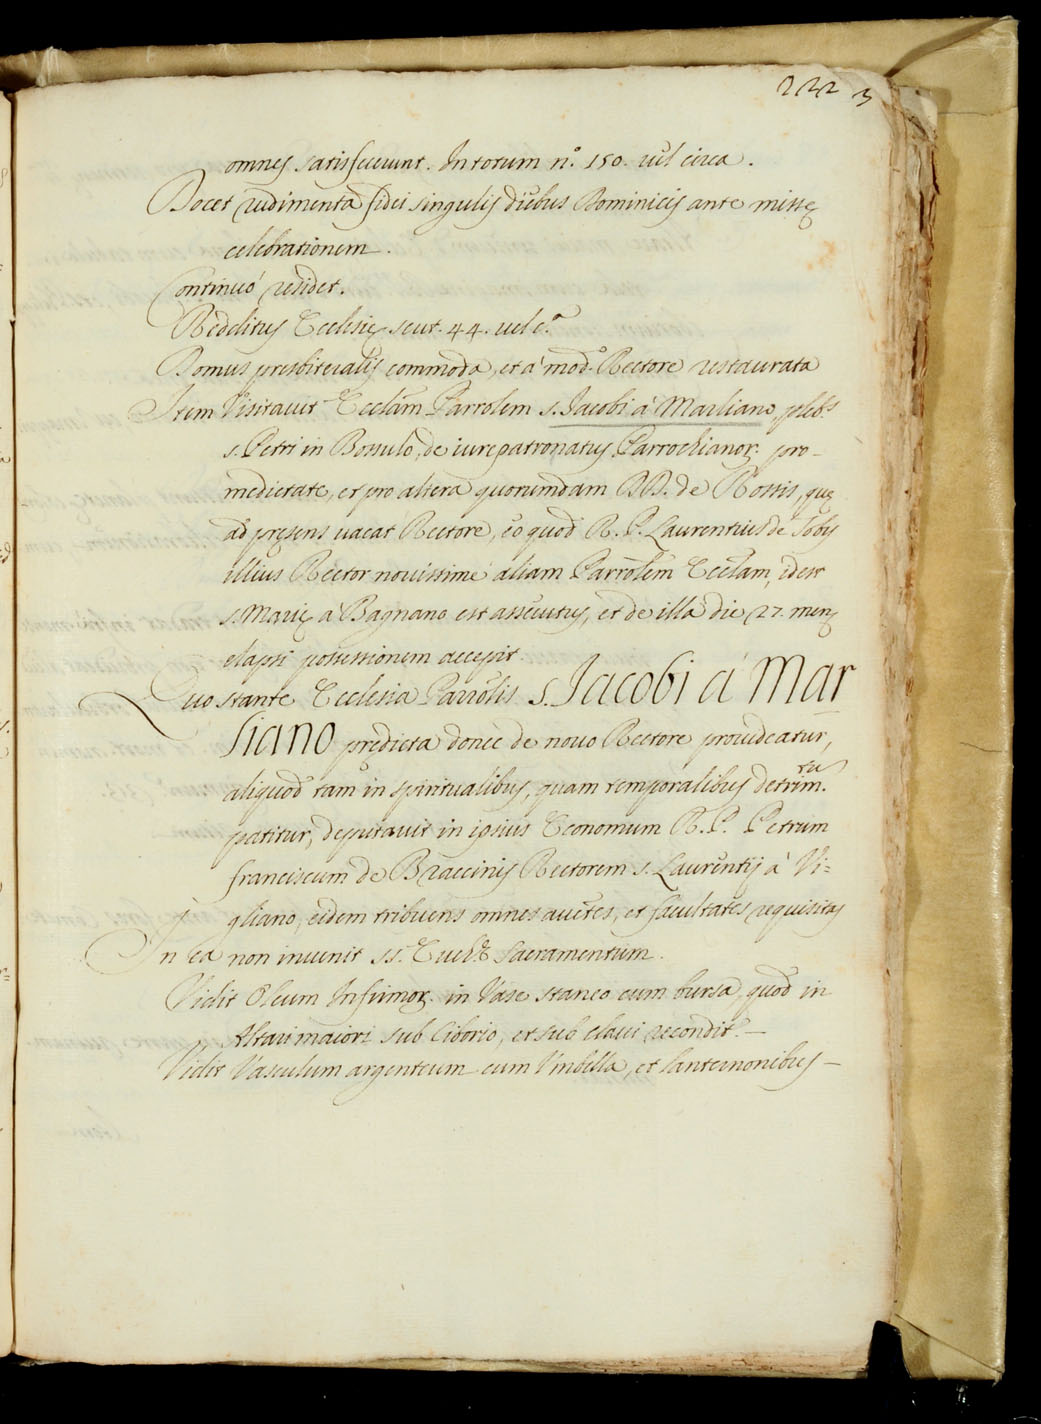 222 3
omnes satisfecerunt. In totum n.º 150. vel circa.
Docet rudimenta fidei singulis diebus Dominicis ante missę
celebrationem.
Continuó residet.
Redditus Ecclesię scut. 44. vel c.ª
Domus presbiteralis commoda, et á mod.º Rectore restaurata
Item Visitavit Ecclam Parrolem s. Jacobi á Marliano, pleb.s
s. Petri in Bossulo, de iurepatronatus Parrochianor. pro-
medietate, et pro altera quorumdam DD. de Rossis, quę
ad pręsens vacat Rectore, eo quod R. P. Laurentius de
illius Rector novissimé aliam Parrolem Ecclam, idest
s. Marię á Bagnano est assecutus, et de illa die 27. mens
elapsi possessionem accepit.
Quo stante Ecclesia Parrolis s. Jacobi á Mar
liano predicta donec de novo Rectore provideatur,
aliquod tam in spiritualibus, quam temporalibus detrim.tu
patitur, deputavit in ipsius Economum R. P. Petrum
franciscum de Braccinis Rectorem s. Laurentij á Vi=
gliano, eidem tribuens omnes auctes, et facultates requisitas
In ea non invenit ss. Euch.ę Sacramentum.
Vidit Oleum Infirmor. in Vase staneo cum bursa, quod in
Altari maiori sub Ciborio, et sub clavi recondit.r
Vidit Vasculum argenteum cum Vmbella, et lanternonibus